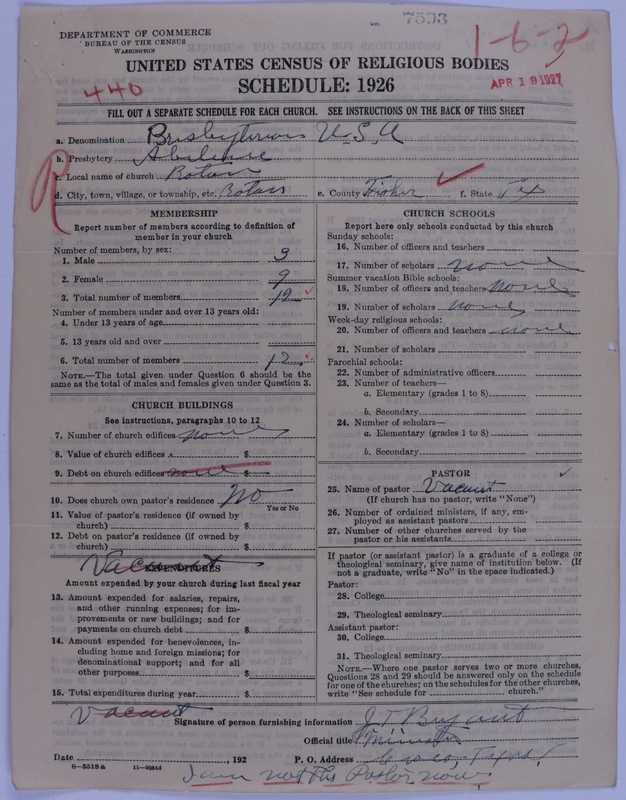 7593
DEPARTMENT OF COMMERCE
BUREAU OF THE CENSUS
WASHINGTON
1-6-2
UNITED STATES CENSUS OF RELIGIOUS BODIES
440
SCHEDULE: 1926
APR 19 1927
FILL OUT A SEPARATE SCHEDULE FOR EACH CHURCH. SEE INSTRUCTIONS ON THE BACK OF THIS SHEET
a. Denomination Presbyterian U.S.A
b. Presbytery Abilene
c. Local name of church Rotan
R
d. City, town, village, or township, etc. Rotan e. County Fisher f. State Tex
MEMBERSHIP
Report number of members according to definition of
member in your church
Number of members, by sex:
1. Male 3
2. Female 9
3. Total number of members 12
Number of members under and over 13 years old:
4. Under 13 years of age
5. 13 years old and over
6. Total number of members 12
NOTE.—The total given under Question 6 should be the
same as the total of males and females given under Question 3.
CHURCH BUILDINGS
See instructions, paragraphs 10 to 12
7. Number of church edifices none
8. Value of church edifices $
9. Debt on church edifices none $
10. Does church own pastor's residence No
Yes or No
11. Value of pastor's residence (if owned by
church) $
12. Debt on pastor's residence (if owned by
church) $
Vacant
EXPENDITURES
Amount expended by your church during last fiscal year
13. Amount expended for salaries, repairs,
and other running expenses; for im-
provements or new buildings; and for
payments on church debt $
14. Amount expended for benevolences, in-
cluding home and foreign missions; for
denominational support; and for all
other purposes $
15. Total expenditures during year $
CHURCH SCHOOLS
Report here only schools conducted by this church
Sunday schools:
16. Number of officers and teachers
17. Number of scholars none
Summer vacation Bible schools:
18. Number of officers and teachers none
19. Number of scholars none
Week-day religious schools:
20. Number of officers and teachers none
21. Number of scholars
Parochial schools:
22. Number of administrative officers
23. Number of teachers—
a. Elementary (grades 1 to 8)
b. Secondary
24. Number of scholars—
a. Elementary (grades 1 to 8)
b. Secondary
PASTOR
25. Name of pastor Vacant
(If church has no pastor, write "None")
26. Number of ordained ministers, if any, em-
ployed as assistant pastors
27. Number of other churches served by the
pastor or his assistants
If pastor (or assistant pastor) is a graduate of a college or
theological seminary, give name of institution below. (If
not a graduate, write "No" in the space indicated.)
Pastor:
28. College
29. Theological seminary
Assistant pastor:
30. College
31. Theological seminary
NOTE.—Where one pastor serves two or more churches,
Questions 28 and 29 should be answered only on the schedule
for one of the churches; on the schedules for the other churches,
write "See schedule for church."
Vacant
Signature of person furnishing information J T Bryant
Official title Minister
Date , 192 P. O. Address Texas
8-5518a 11-9054d
I am not the Pastor now.